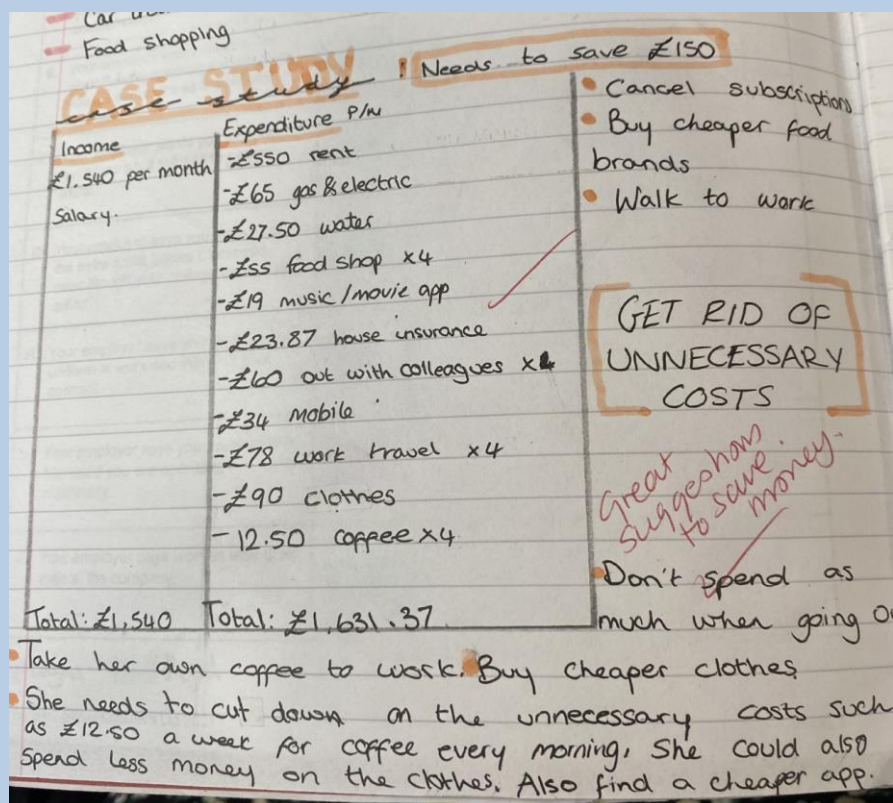 Car
Food shopping
CASE STUDY
case study
! Needs to save £150
Income
£1.540 per month
Salary.
Total: £1,540
Expenditure P/M
-£550 rent
-£65 gas & electric
-£27.50 water
-£55 food shop x4
-£19 music/movie app
-£23.87 house insurance
-£60 out with colleagues x4
-£34 mobile
-£78 work travel x4
-£90 clothes
- 12.50 coffee x4
Total: £1,631.37
Cancel subscription
Buy cheaper food
brands
Walk to work
GET RID OF
UNNECESSARY
COSTS
Great
suggestions
to save
money.
Don't spend as
much when going
Take her own coffee to work. Buy cheaper clothes
She needs to cut down on the unnecessary costs such
as £12.50 a week for coffee every morning, She could also
Spend less money on the clothes. Also find a cheaper app.